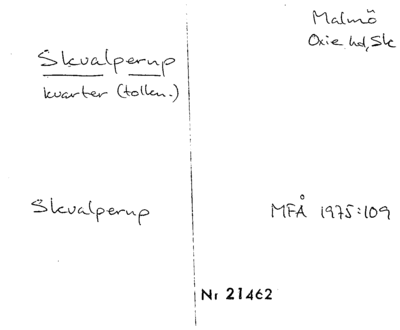 Malmö
Oxie hd, Sk
Skvalperup
kvarter (tolkn.)
Skvalperup
MFÅ 1975:109
Nr 21462